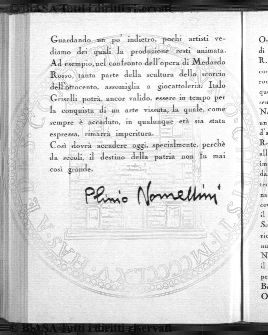 Guardando un po' indietro, pochi artisti ve-
diamo dei quali la produzione resti animata.
Ad esempio, nel confronto dell'opera di Medardo
Rosso, tanta parte della scultura dello scorcio
dell'ottocento, assomiglia a giocattoleria. Italo
Griselli potrà, ancor valido, essere in tempo per
la conquista di un'arte vissuta, la quale, come
sempre è accaduto, in qualunque era sia stata
espressa, rimarrà imperitura.
Così dovrà accadere oggi, specialmente, perchè
da secoli, il destino della patria non fu mai
così grande.
Plinio Nomellini